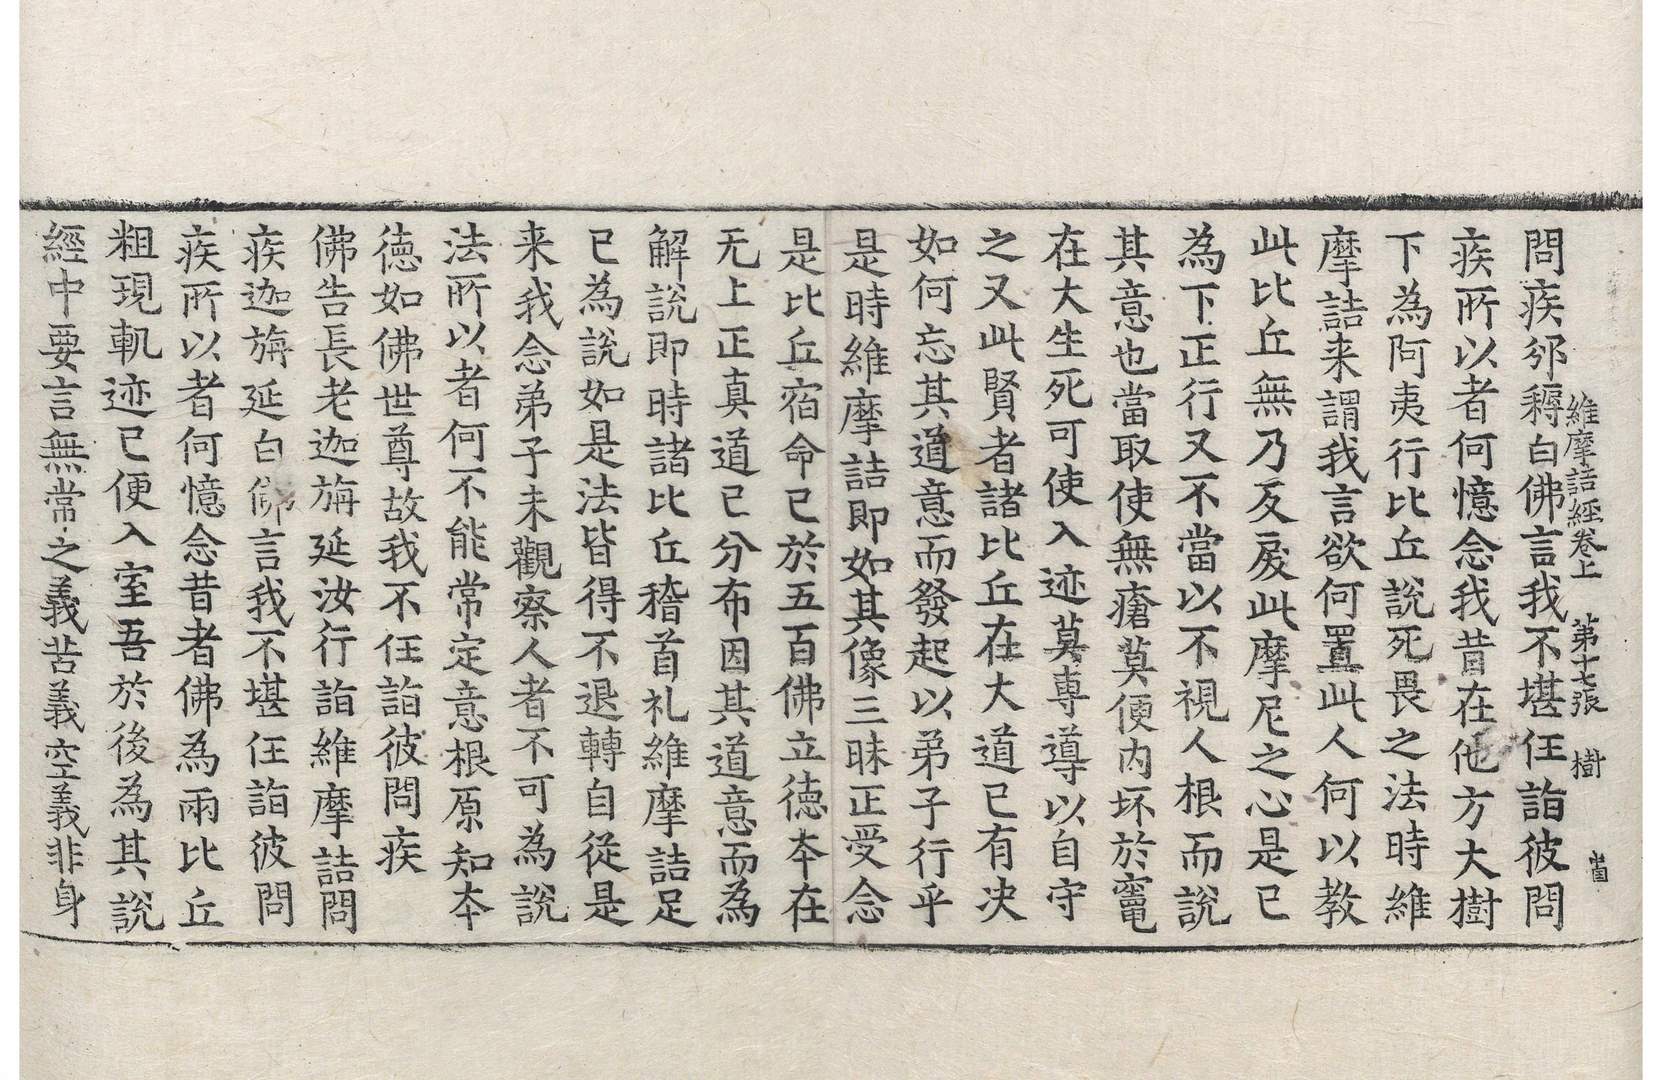 維摩詰經卷上 第十七張 樹
問疾邠耨白佛言我不堪任詣彼問
疾所以者何憶念我昔在他方大樹
下為阿夷行比丘說死畏之法時維
摩詰来謂我言欲何置此人何以教
此比丘無乃反戾此摩尼之心是已
為下正行又不當以不視人根而說
其意也當取使無瘡莫便内坏於竈
在大生死可使入迹莫專導以自守
之又此賢者諸比丘在大道已有决
如何忘其道意而發起以弟子行乎
是時維摩詰即如其像三昧正受念
是比丘宿命已於五百佛立德夲在
无上正真道已分布因其道意而為
解說即時諸比丘稽首礼維摩詰足
已為說如是法皆得不退轉自從是
来我念弟子未觀察人者不可為說
法所以者何不能常定意根原知夲
德如佛世尊故我不任詣彼問疾
佛告長老迦旃延汝行詣維摩詰問
疾迦旃延白佛言我不堪任詣彼問
疾所以者何憶念昔者佛為兩比丘
粗現軌迹已便入室吾於後為其說
經中要言無常之義苦義空義非身